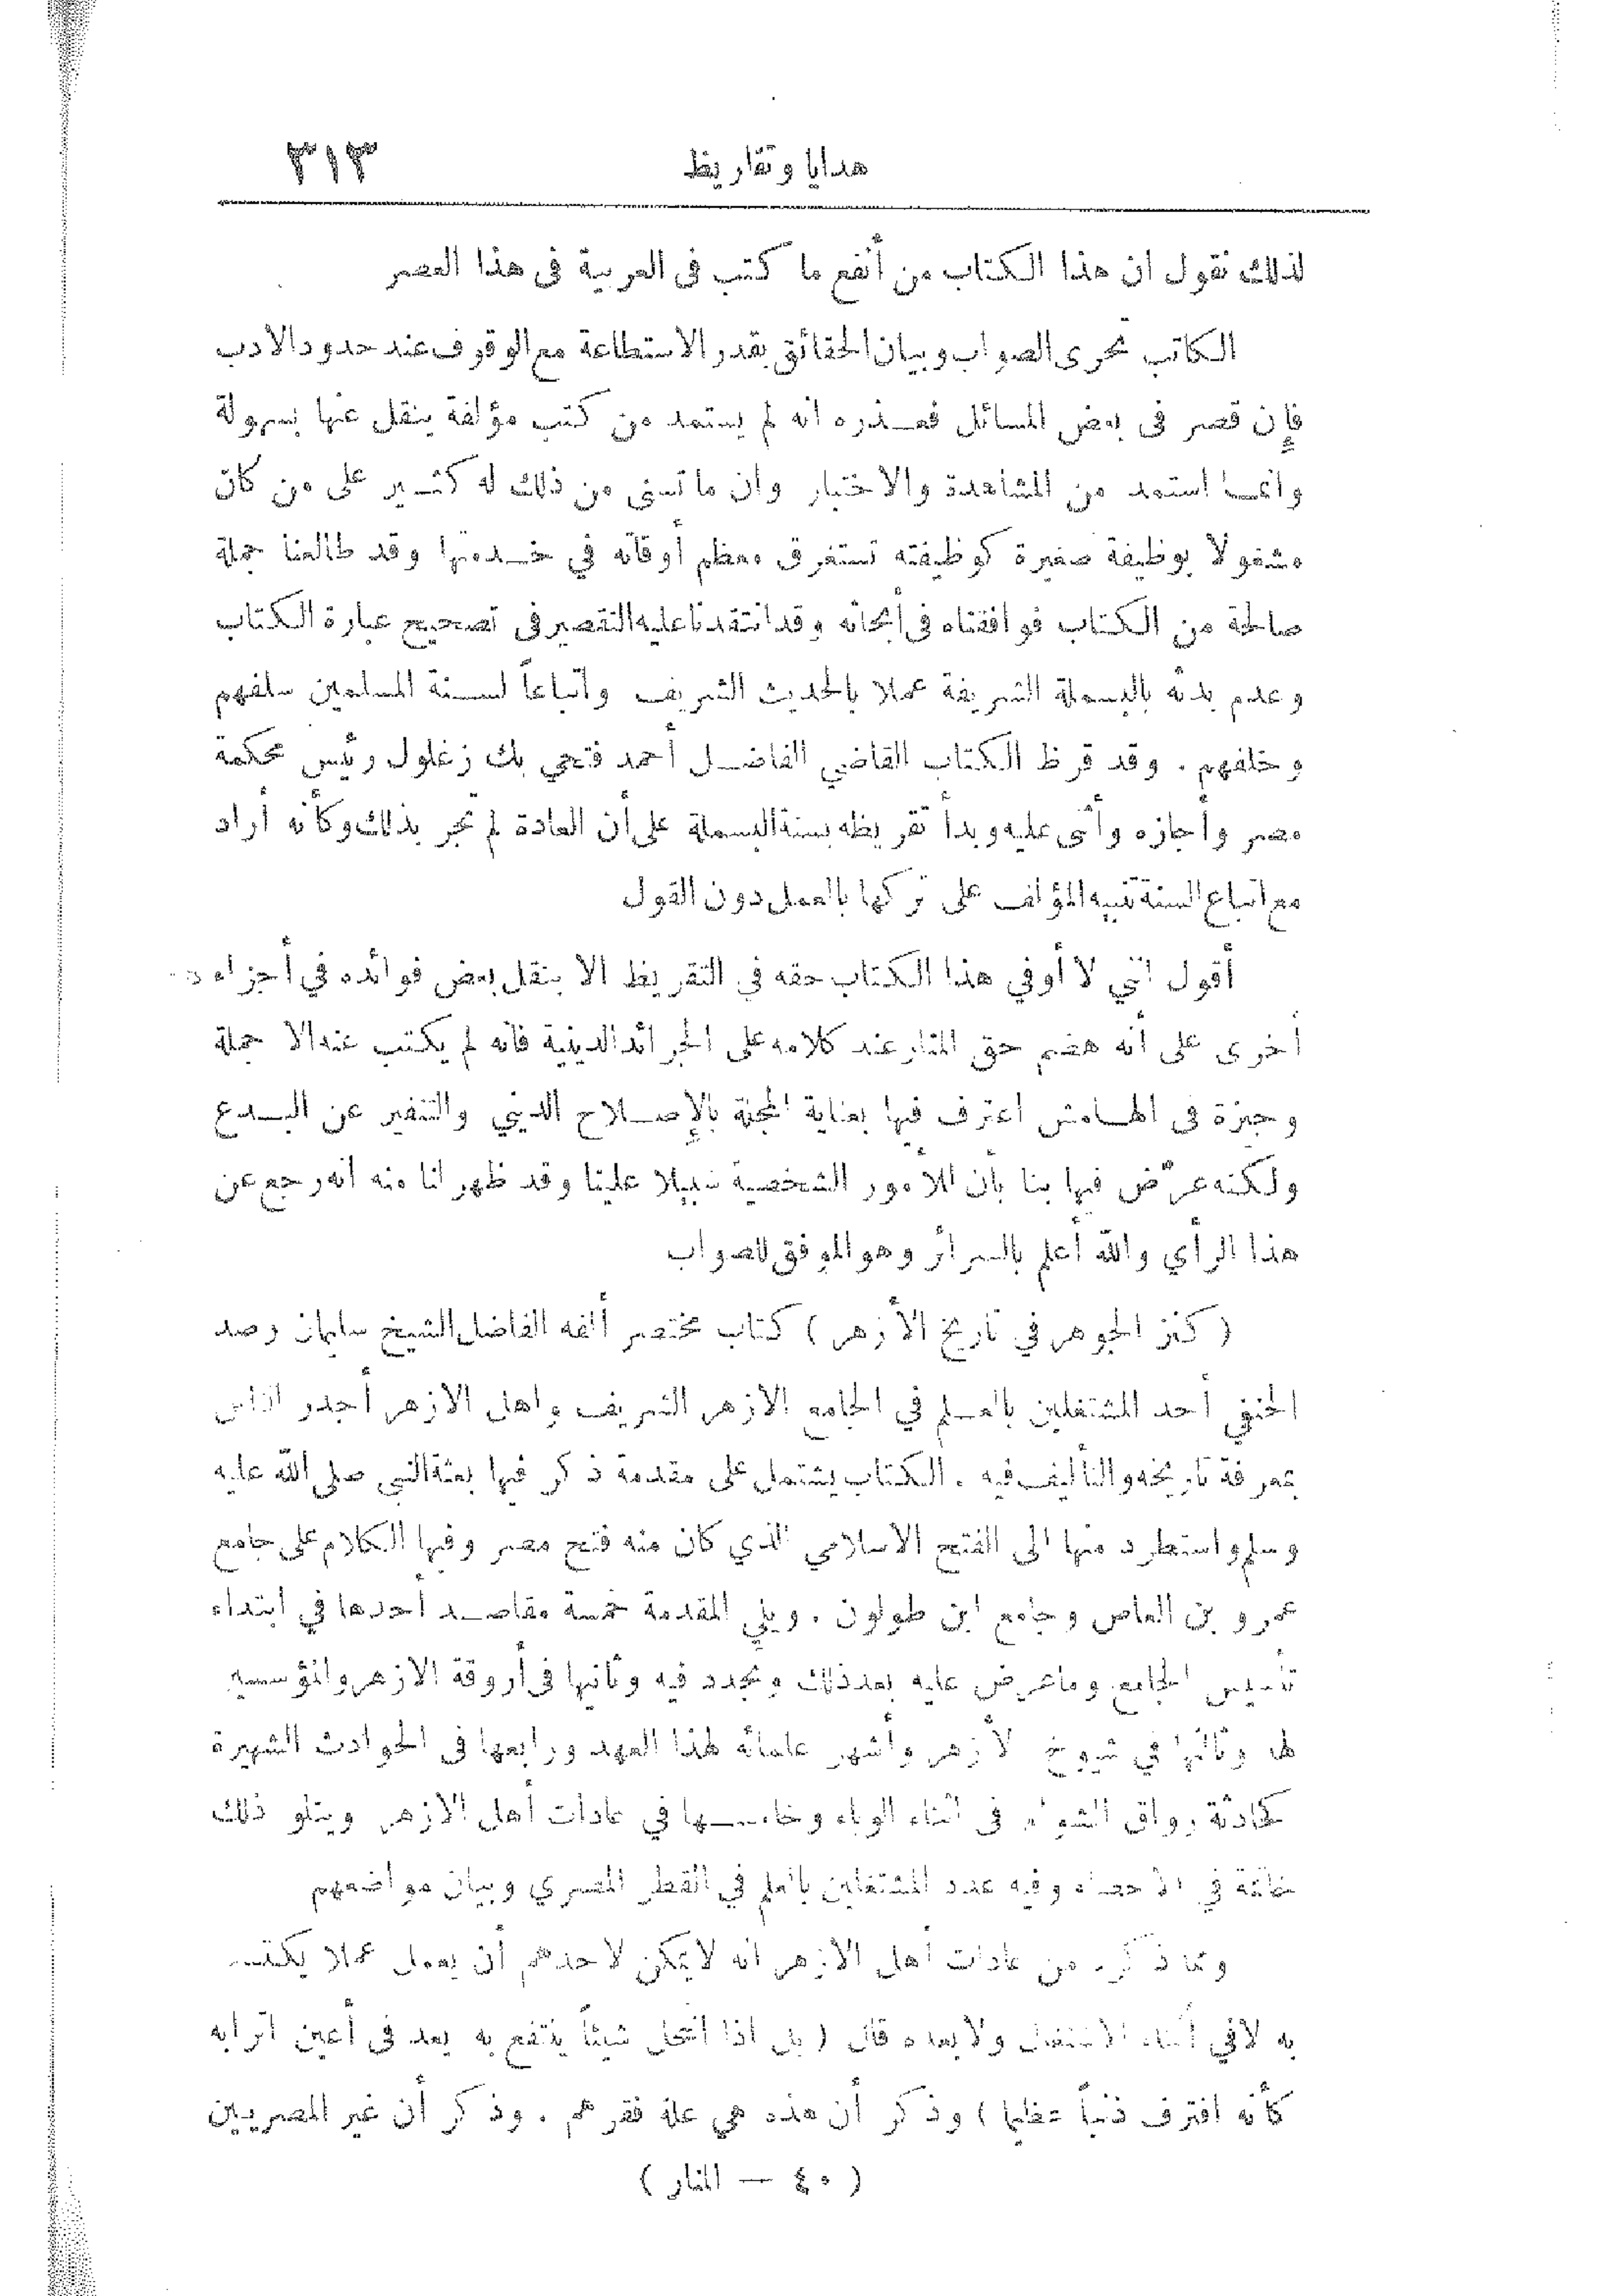 هدايا وتقاريظ ٣١٣
لذلك نقول ان هذا الكتاب من أنفع ما كتب فى العربية فى هذا العصر
الكاتب تحرى الصواب وبيان الحقائق بقدر الاستطاعة مع الوقوف عند حدود الادب
فإن قصر فى بعض المسائل فعـذره انه لم يستمد من كتب مؤلفة ينقل عنها بسهولة
وانمـا استمد من المشاهدة والاختبار وان ما تسنى من ذلك له كثـير على من كان
مشغولا بوظيفة صغيرة كوظيفته تستغرق معظم أوقاته في خـدمتها وقد طالعنا جملة
صالحة من الكتاب فوافقناه فى أبحاثه وقد انتقدنا عليه التقصير فى تصحيح عبارة الكتاب
وعدم بدئه بالبسملة الشريفة عملا بالحديث الشريف واتباعاً لسـنة المسلمين سلفهم
وخلفهم . وقد قرظ الكتاب القاضي الفاضـل أحمد فتحي بك زغلول رئيس محكمة
مصر وأجازه وأثنى عليه وبدأ تقريظه بسنة البسملة على أن العادة لم تجر بذلك وكأنه أراد
مع اتباع السنة تنبيه المؤلف على تركها بالعمل دون القول
أقول انني لا أوفي هذا الكتاب حقه في التقريظ الا بنقل بعض فوائده في أجزاء
أخرى على أنه هضم حق المنار عند كلامه على الجرائد الدينية فانه لم يكتب عنه الا جملة
وجيزة فى الهـامش اعترف فيها بعناية المجلة بالإصـلاح الديني والتنفير عن البـدع
ولكنه عرّض فيها بنا بأن للأمور الشخصية سبيلا علينا وقد ظهر لنا منه انه رجع عن
هذا الرأي والله أعلم بالسرائر وهو الموفق للصواب
( كنز الجوهر في تاريخ الأزهر ) كتاب مختصر ألفه الفاضل الشيخ سليمان رصد
الحنفي أحد المشتغلين بالعـلم في الجامع الازهر الشريف واهل الازهر أجدر الناس
بمعرفة تاريخه والتأليف فيه . الكتاب يشتمل على مقدمة ذكر فيها بعثة النبي صلى الله عليه
وسلم واستطرد منها الى الفتح الاسلامي الذي كان منه فتح مصر وفيها الكلام على جامع
عمرو بن العاص وجامع ابن طولون . ويلي المقدمة خمسة مقاصـد أحدها في ابتداء
تأسيس الجامع وما عرض عليه بعد ذلك وتجدد فيه وثانيها فى أروقة الازهر والمؤسسين
لها وثالثها في شيوخ الأزهر وأشهر علمائه لهذا العهد ورابعها فى الحوادث الشهيرة
كحادثة رواق الشوام فى اثناء الوباء وخامسـها في عادات أهل الازهر ويتلو ذلك
خاتمة في الاحصاء وفيه عدد المشتغلين بالعلم في القطر المصري وبيان مواضعهم
ومما ذكره من عادات أهل الازهر انه لا يمكن لاحدهم أن يعمل عملا يكتسب
به لا في أثناء الاشتغال ولا بعده قال ( بل اذا انتحل شيئاً ينتفع به يعد فى أعين اترابه
كأنه اقترف ذنباً عظيما ) وذكر أن هذه هي علة فقرهم . وذكر أن غير المصريين
( ٤٠ — المنار )